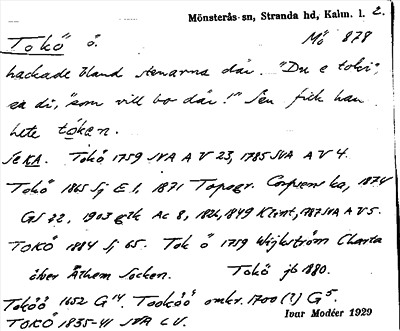 Mönsterås sn, Stranda hd, Kalm. l. 2.
Tokö ö. Mö 878
hackade bland stenarna där. "Du e toki",
sa di, "som vill bo där!" Sen fick han
hete tóken.
Se KA. Tokö 1759 SVA A V 23, 1785 SVA A V 4.
Tokö 1865 Sj E 1, 1871 Topogr. Corpsens ka, 1874
GS 22, 1903 gtk Ac 8, 1826, 1849 Klint, 1787 SVA A V 5.
TOKÖ 1884 Sj 65. Tok ö 1719 Wijkström Charta
över Ålhem Socken. Tokö jb 1880.
Toköö 1652 G 14. Tooköö omkr. 1700 (?) G 5.
TOKÖ 1835-41 SVA L V. Ivar Modéer 1929